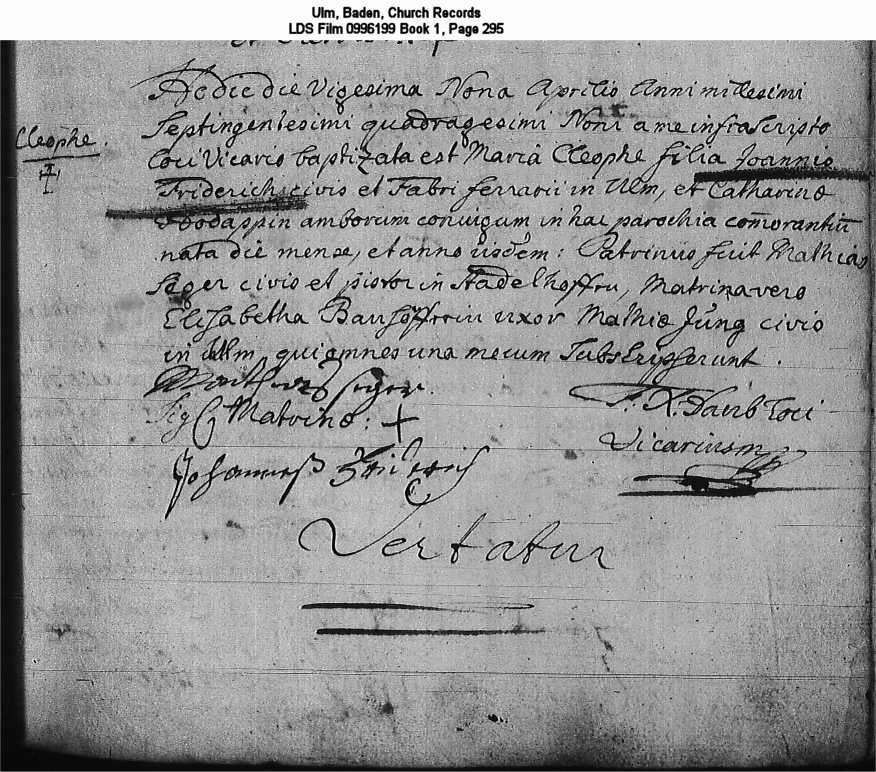 Ulm, Baden, Church Records
LDS Film 0996199 Book 1, Page 295
Hodie die Vigesima Nona Aprilis Anni millesimi
Septingentesimi quadragesimi Noni a me infrascripto
Cleophe.
loci Vicario baptizata est Maria Cleophe filia Joannis
Friderich civis et Fabri ferrarii in Ulm, et Catharinæ
amborum coniugum in hac parochia com̄orantiū
nata die mense, et anno iisdem: Patrinus fuit Mathias
Seger civis et pistor in Stadelhoffen, Matrina vero
Elisabetha uxor Mathiæ Jüng civis
in Ullm qui omnes una mecum Subscripserunt.
Mathias Seger
Sig Matrinæ: +
F. X. Daub Loci
Vicarius
Johannes
Vertatur